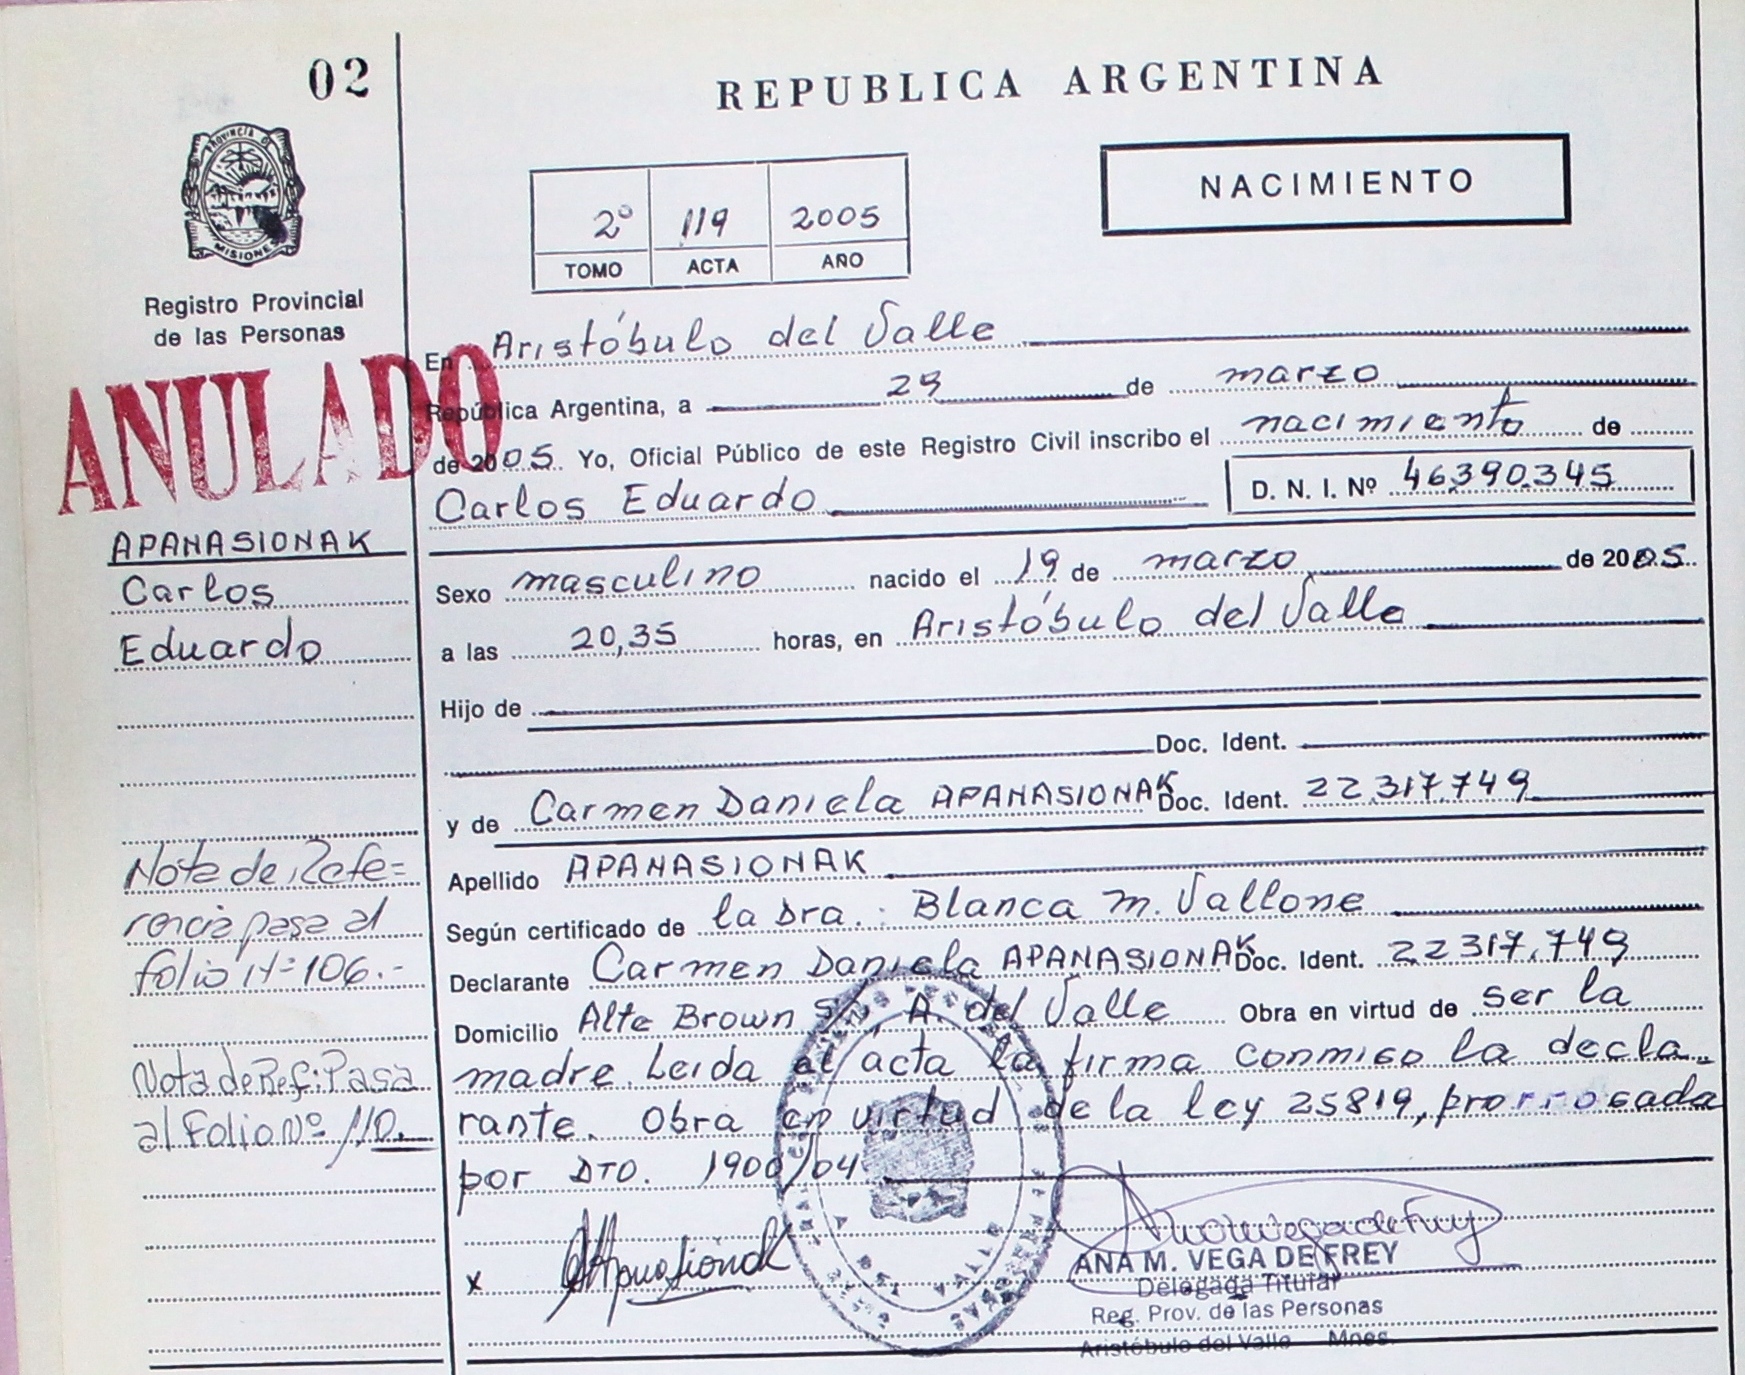 02
REPUBLICA ARGENTINA
PROVINCIA D
MISIONES
Registro Provincial
de las Personas
NACIMIENTO
2º 119 2005
TOMO ACTA AÑO
ANULADO
En Aristóbulo del Valle
República Argentina, a 29 de marzo
de 2005. Yo, Oficial Público de este Registro Civil inscribo el nacimiento de
Carlos Eduardo D. N. I. Nº 46.390.345
APANASIONAK
Carlos
Eduardo
Sexo masculino nacido el 19 de marzo de 2005.
a las 20,35 horas, en Aristóbulo del Valle
Hijo de
Doc. Ident.
y de Carmen Daniela APANASIONAK Doc. Ident. 22.317.749
Apellido APANASIONAK
Según certificado de la Dra.: Blanca M. Vallone
Declarante Carmen Daniela APANASIONAK Doc. Ident. 22.317.749
Domicilio Alte Brown S/, A. del Valle Obra en virtud de ser la
madre. Leida el acta la firma conmigo la decla
rante. Obra en virtud de la ley 25819, prorrogada
por DTO. 1900/04
Nota de Refe=
rencia pasa al
folio Nº 106.-
Nota de Ref: Pasa
al Folio Nº 110.
x
ANA M. VEGA DE FREY
Delegada Titular
Reg. Prov. de las Personas
Aristóbulo del Valle Mnes.